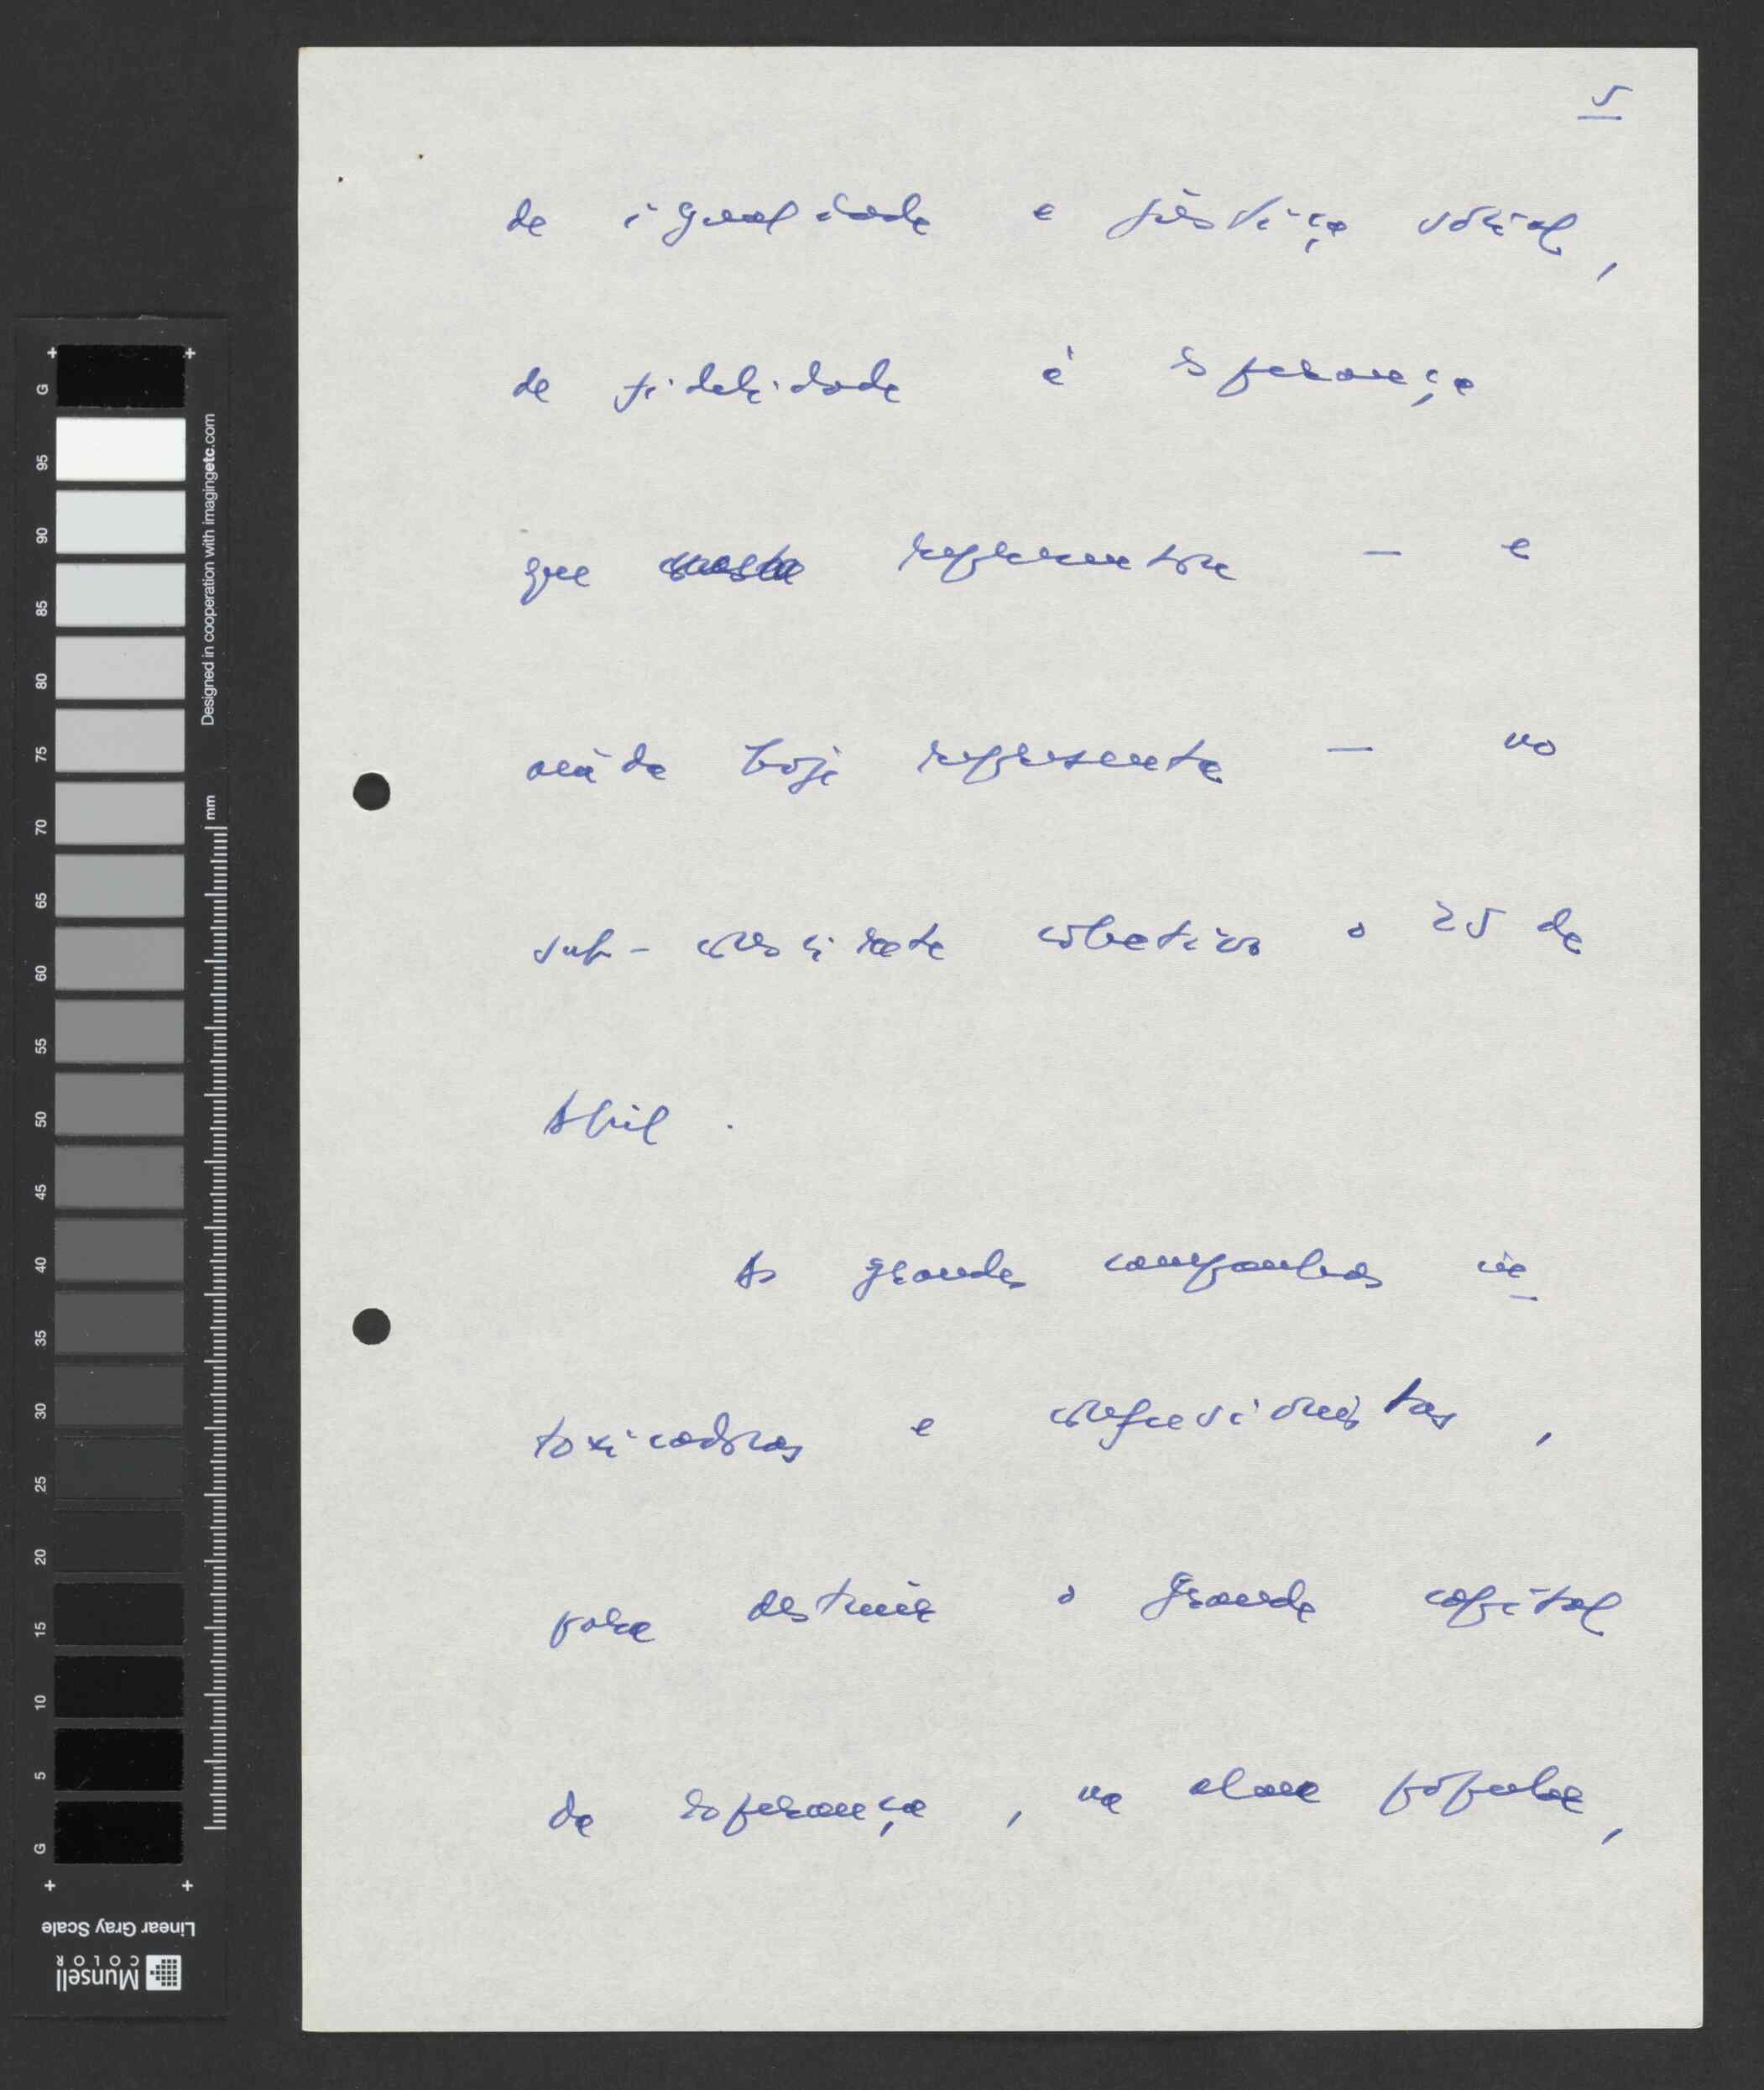 5
de igualdade e justiça social,
de fidelidade à esperança
que representou — e
ainda hoje representa — no
sub-consciente coletivo o 25 de
Abril.
As grandes campanhas in-
toxicadoras e confusionistas,
para destruir o grande capital
de esperança, na alma popular,
G
95
90
85
80
75
70
65
60
55
50
45
40
35
30
25
20
15
10
5
G
Designed in cooperation with imagingetc.com
mm
Linear Gray Scale
Munsell
COLOR